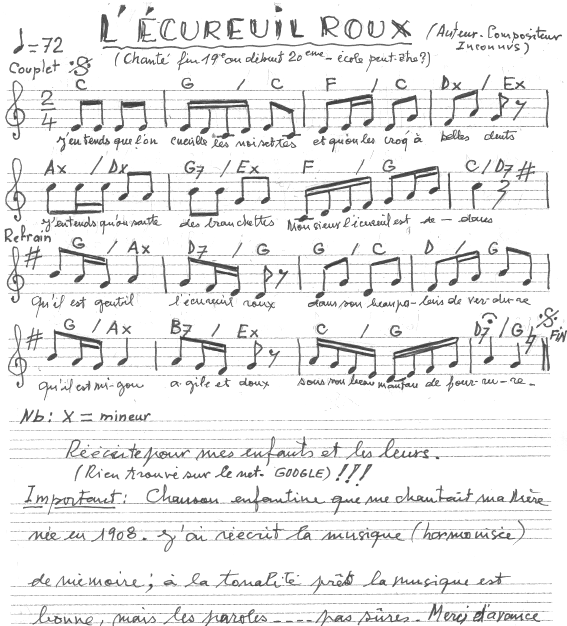 L'ÉCUREUIL ROUX (Auteur-Compositeur Inconnus)
♩=72
(Chanté fin 19e ou début 20eme - école peut-être?)
Couplet
C G / C F / C Dx / Ex
2/4
J'entends que l'on cueille les noisettes et qu'on les croq' à belles dents
Ax / Dx G7 / Ex F / G C / D7
J'entends qu'on saute des branchettes Monsieur l'écureuil est de - dans
Refrain
G / Ax D7 / G G / C D / G
Qu'il est gentil l'écureuil roux dans son beau pa-lais de ver-du-re
G / Ax B7 / Ex C / G D7 / G FIN
Qu'il est mi-gnon a-gile et doux sous son beau manteau de four-ru-re_
Nb: X = mineur
Réécrite pour mes enfants et les leurs.
(Rien trouvé sur le net. GOOGLE) !!!
Important: Chanson enfantine que me chantait ma Mère
née en 1908. J'ai réécrit la musique (harmonisée)
de mémoire; à la tonalité près la musique est
bonne, mais les paroles ---- pas sûres. Merci d'avance